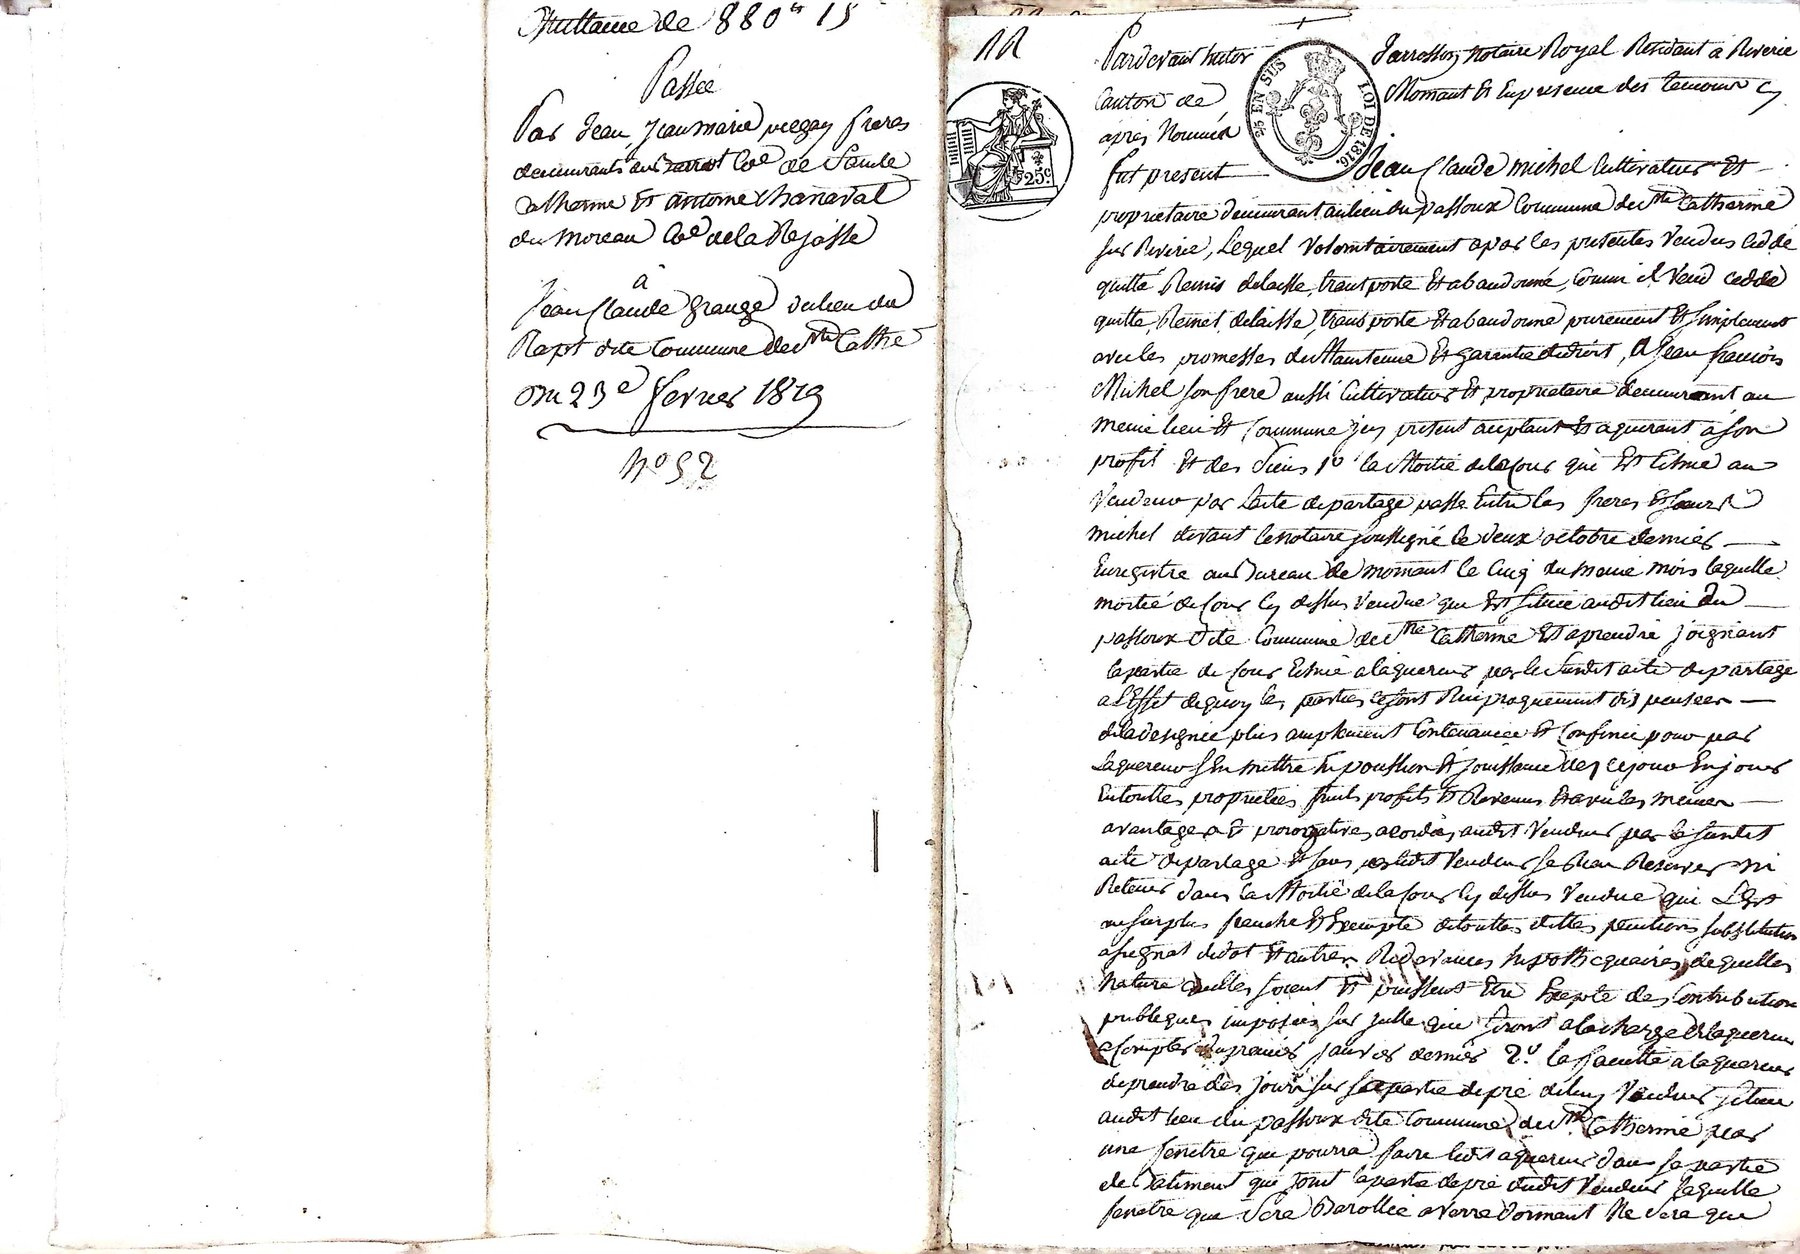 Quittance de 880 fr 15
Passée
Par Jean, Jean marie pelegay freres
demeurants au Barrot Cne de Sainte
Catherine Et antoine Chanaval
du Moreau Cne de la Rejasse
à
Jean Claude Grange du lieu du
Rapt dite Commune de Ste Cathe
Du 23e fevrier 1819
No 52
11
Pardevant Victor Jarrosson, notaire Royal Residant a Riverie
Canton de Mornant Et En presence des temoins Cy
après Nommés
fut present Jean Claude Michel Cultivateur Et
proprietaire demeurant au lieu du passoux Commune de Ste Catherine
sur Riverie, Lequel Volontairement a par les presentes Vendus ceddé
quitté Remis delaissé, transporté Et abandonné, Comme il Vend cedde
quitte, Remet, delaisse, transporte Et abandonne purement Et Simplement
avec les promesses de Maintenue Et garantie de droit, A Jean françois
Michel son frere aussi Cultivateur Et proprietaire demeurant au
meme lieu Et Commune icy present acceptant Et aquerant à son
profit Et des Siens 1o la Moitié de la Cour qui Est Echue au
Vendeur par L'acte de partage passé Entre les freres Et soeurs
michel devant le notaire soussigné le deux octobre dernier
Enregistre au Bureau de mornant le Cinq du meme mois laquelle
moitié de Cour Cy dessus Vendue qui Est Situee audit lieu du
passoux dite Commune de Ste Catherine Et a prendre joignant
la partie de Cour Echue a laquereur par le Susdit acte de partage
a L'Effet de quoy les parties se sont Reciproquement dispensées
de la designée plus amplement Contenancée Et Confinée pour par
Laquereur S'En mettre En possession Et jouissance des ce jour En jouir
En touttes proprietées fruits profits Et Revenus Et avec les memes
avantages Et prerogatives acordés audit Vendeur par le susdit
acte de partage Et sans par ledit Vendeur se Rien Reserver ni
Retenir dans la Moitié de la Cour Cy dessus Vendue qui L'Est
au surplus franche Et Exempte de touttes dettes pentions substitution
assignat de dot Et autres Redevances hypothequaires de quelles
Nature quelles soient Et puissent Etre Excepté des Contributions
publiques imposées sur icelle qui seront a la charge de laquereur
a Compter du premier janvier dernier 2o la faculté a laquereur
de prendre des jours sur sa partie de pré dudit Vendeur situee
audit lieu du passoux dite Commune de Ste Catherine par
une fenetre que pourra faire ledit aquereur dans sa partie
de Batiment qui joint la partie de pré dudit Vendeur laquelle
fenetre qui Sera Barollée a Verre dormant Ne Sera que
25 EN SUS LOI DE 1816
25 c